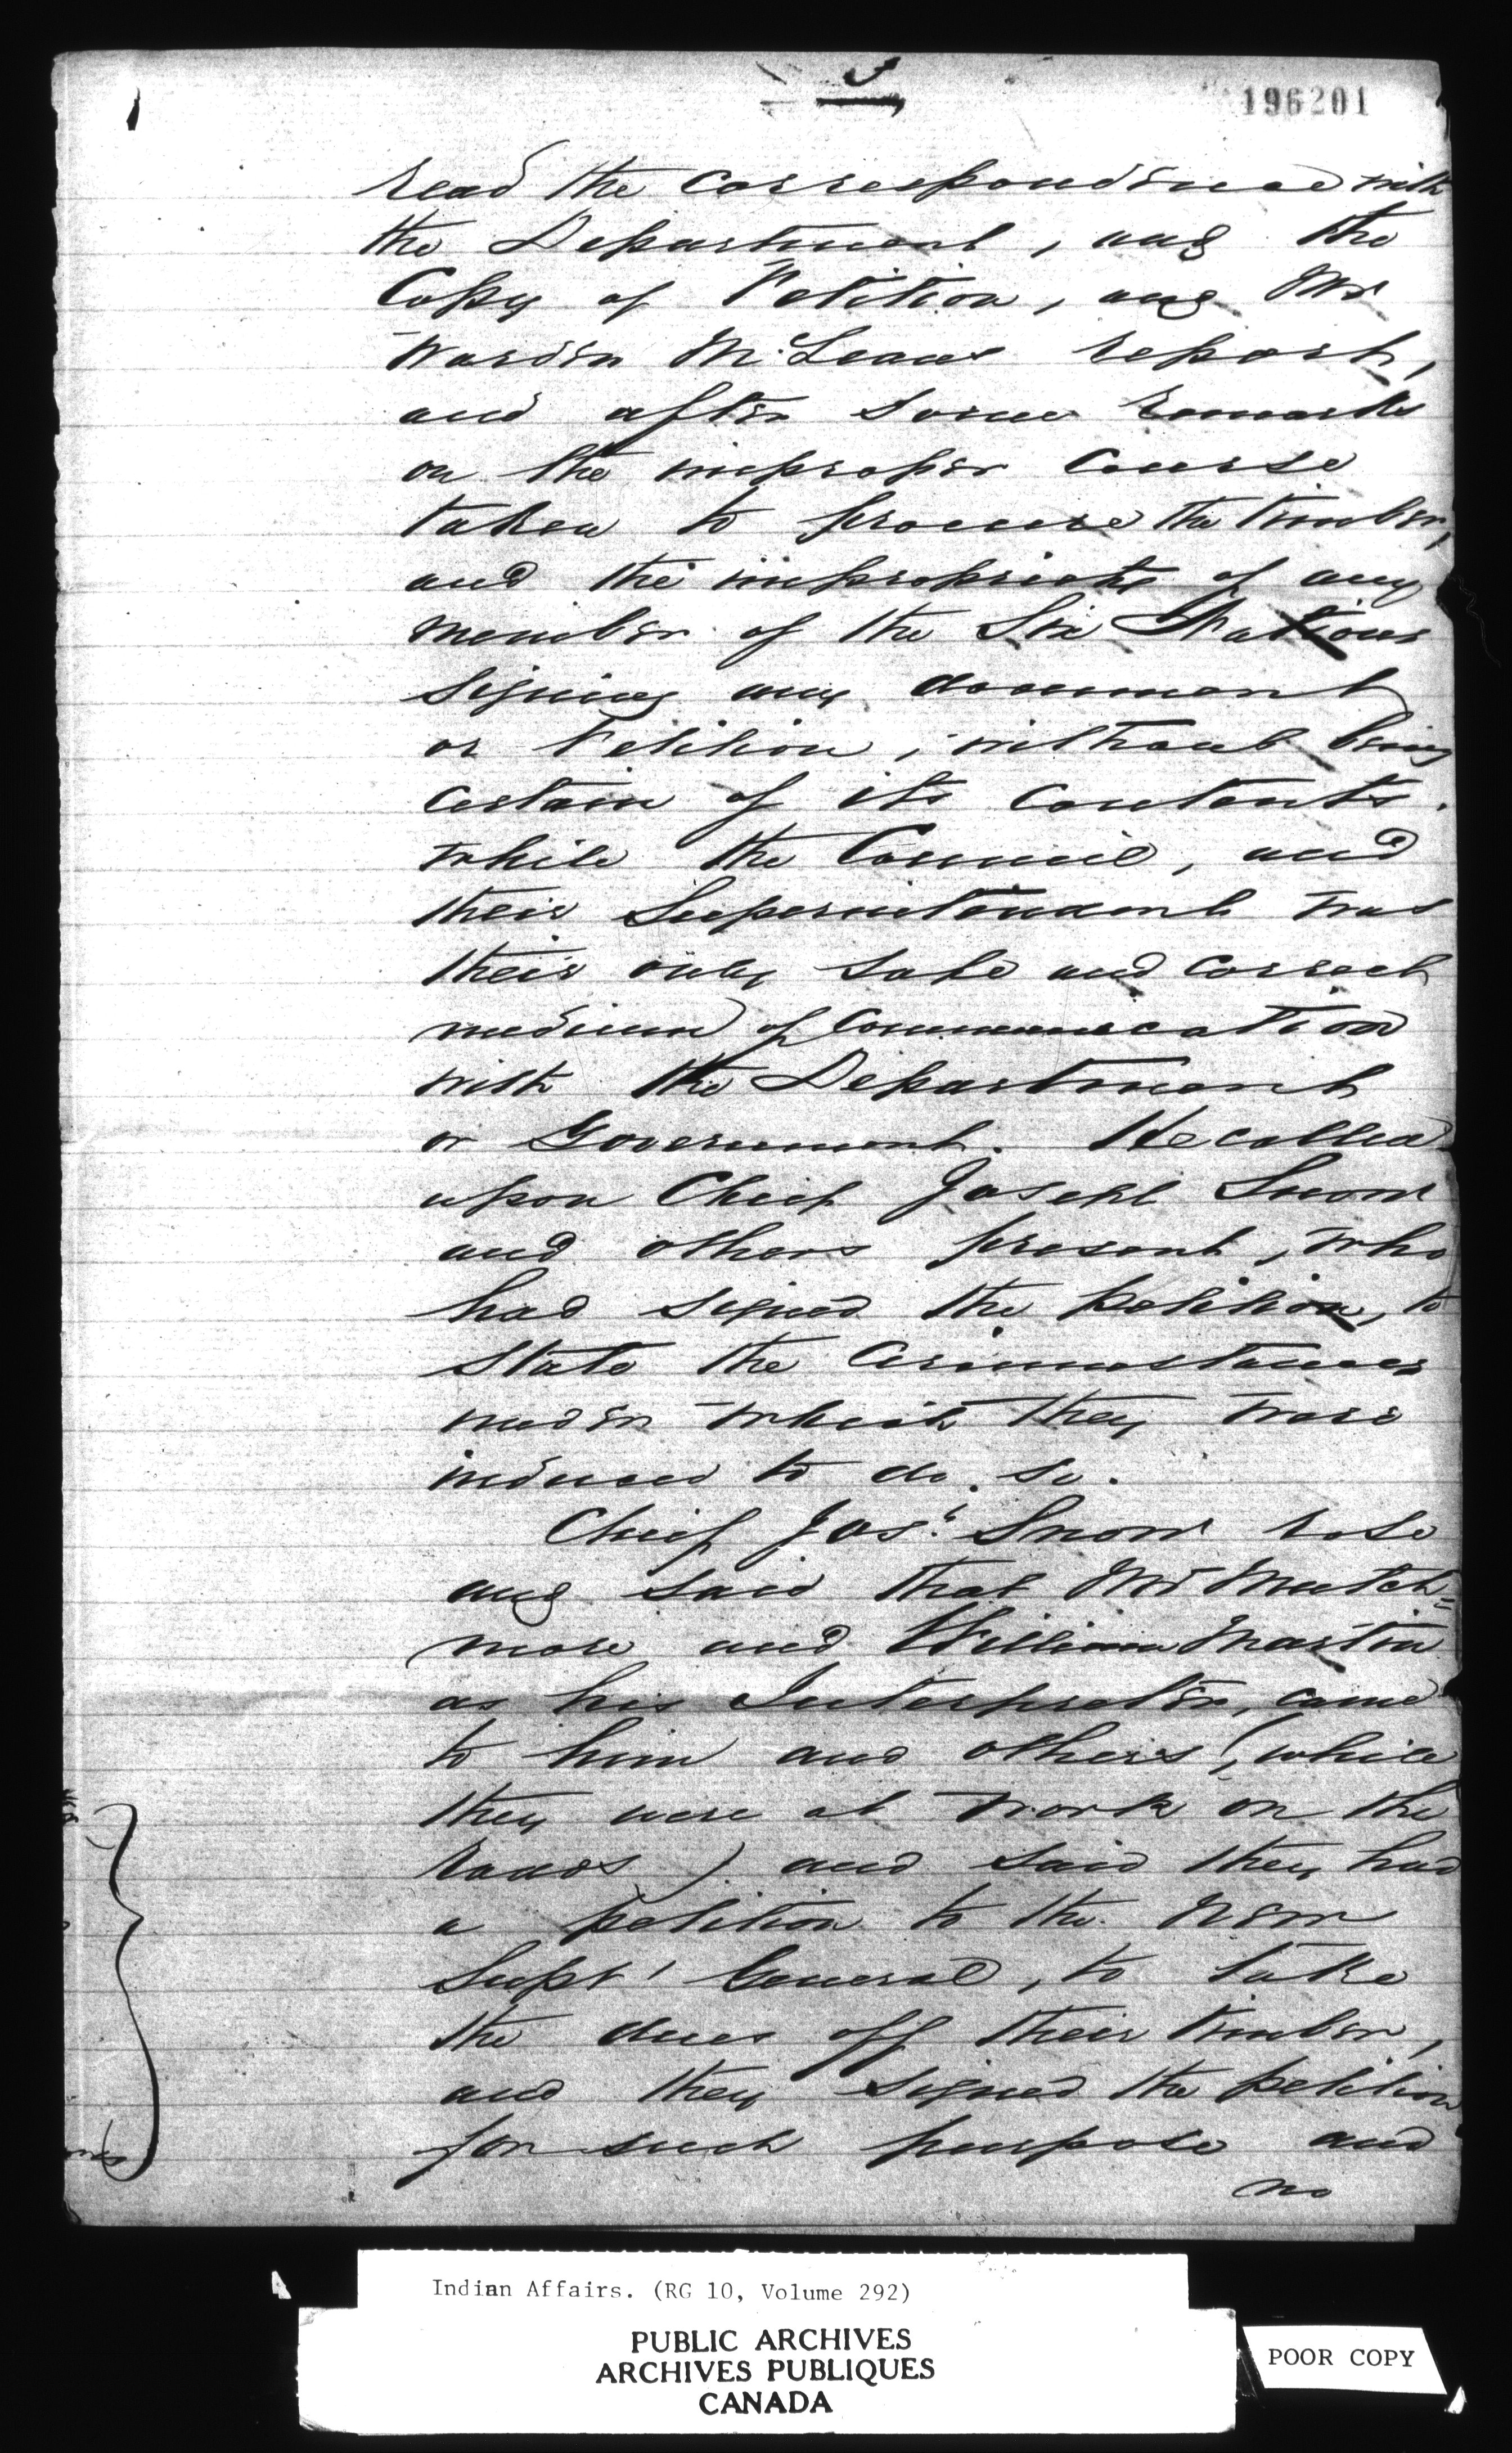 196201
read the Correspondence with
the Department, and the
Copy of Petition, and Mr
Warden McLeans report,
and after some remarks
on the improper Course
taken to procure the timber,
and the impropriety of any
member of the Six Nations
signing any document
or Petition, without being
certain of its contents.
while the Council, and
their Superintendent was
their only safe and correct
medium of Communication
with the Department
or Government. He called
upon Chief Joseph Snow
and others present, who
had signed the petition, to
state the Circumstances
under which they were
induced to do so.
Chief Jos. Snow rose
and said that Mr Mutch=
more and William Martin
as his Interpreter, came
to him and others (while
they were at work on the
roads) and said they had
a petition to the New
Supt General, to take
the dues off their timber,
and they signed the petition
for such purpose and
no
Indian Affairs. (RG 10, Volume 292)
PUBLIC ARCHIVES
ARCHIVES PUBLIQUES
CANADA
POOR COPY